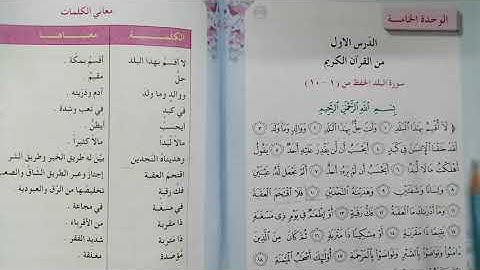 الوحدة الخامسة
الدرس الاول
من القرآن الكريم
سورة البلد الحفظ من (١ - ١٠)
بِسْمِ اللَّهِ الرَّحْمَنِ الرَّحِيمِ
﴿ لَا أُقْسِمُ بِهَذَا الْبَلَدِ ۝١ وَأَنتَ حِلٌّ بِهَذَا الْبَلَدِ ۝٢ وَوَالِدٍ وَمَا وَلَدَ ۝٣
لَقَدْ خَلَقْنَا الْإِنسَانَ فِي كَبَدٍ ۝٤ أَيَحْسَبُ أَن لَّن يَقْدِرَ عَلَيْهِ أَحَدٌ ۝٥ يَقُولُ
أَهْلَكْتُ مَالًا لُّبَدًا ۝٦ أَيَحْسَبُ أَن لَّمْ يَرَهُ أَحَدٌ ۝٧ أَلَمْ نَجْعَل لَّهُ عَيْنَيْنِ
۝٨ وَلِسَانًا وَشَفَتَيْنِ ۝٩ وَهَدَيْنَاهُ النَّجْدَيْنِ ۝١٠ فَلَا اقْتَحَمَ الْعَقَبَةَ
۝١١ وَمَا أَدْرَاكَ مَا الْعَقَبَةُ ۝١٢ فَكُّ رَقَبَةٍ ۝١٣ أَوْ إِطْعَامٌ فِي يَوْمٍ ذِي مَسْغَبَةٍ
۝١٤ يَتِيمًا ذَا مَقْرَبَةٍ ۝١٥ أَوْ مِسْكِينًا ذَا مَتْرَبَةٍ ۝١٦ ثُمَّ كَانَ مِنَ الَّذِينَ
آمَنُوا وَتَوَاصَوْا بِالصَّبْرِ وَتَوَاصَوْا بِالْمَرْحَمَةِ ۝١٧ أُولَئِكَ أَصْحَابُ الْمَيْمَنَةِ ۝١٨
معاني الكلمات
الكلمة معناها
لا أقسم بهذا البلد أقسم بمكة .
حل مقيم .
ووالد وما ولد آدم وذريته .
في كبد في تعب وشدة .
أيحسب أيظن .
مالا لبدا مالا كثيرا .
وهديناه النجدين بين له طريق الخير وطريق الشر
اقتحم العقبة إجتاز وعبر الطريق الشاق والصعب
فك رقبة تخليصها من الرق والعبودية
في مسغبة في مجاعة .
ذا مقربة من الأقرباء .
ذا متربة شديد الفقر
مؤصدة مغلقة .